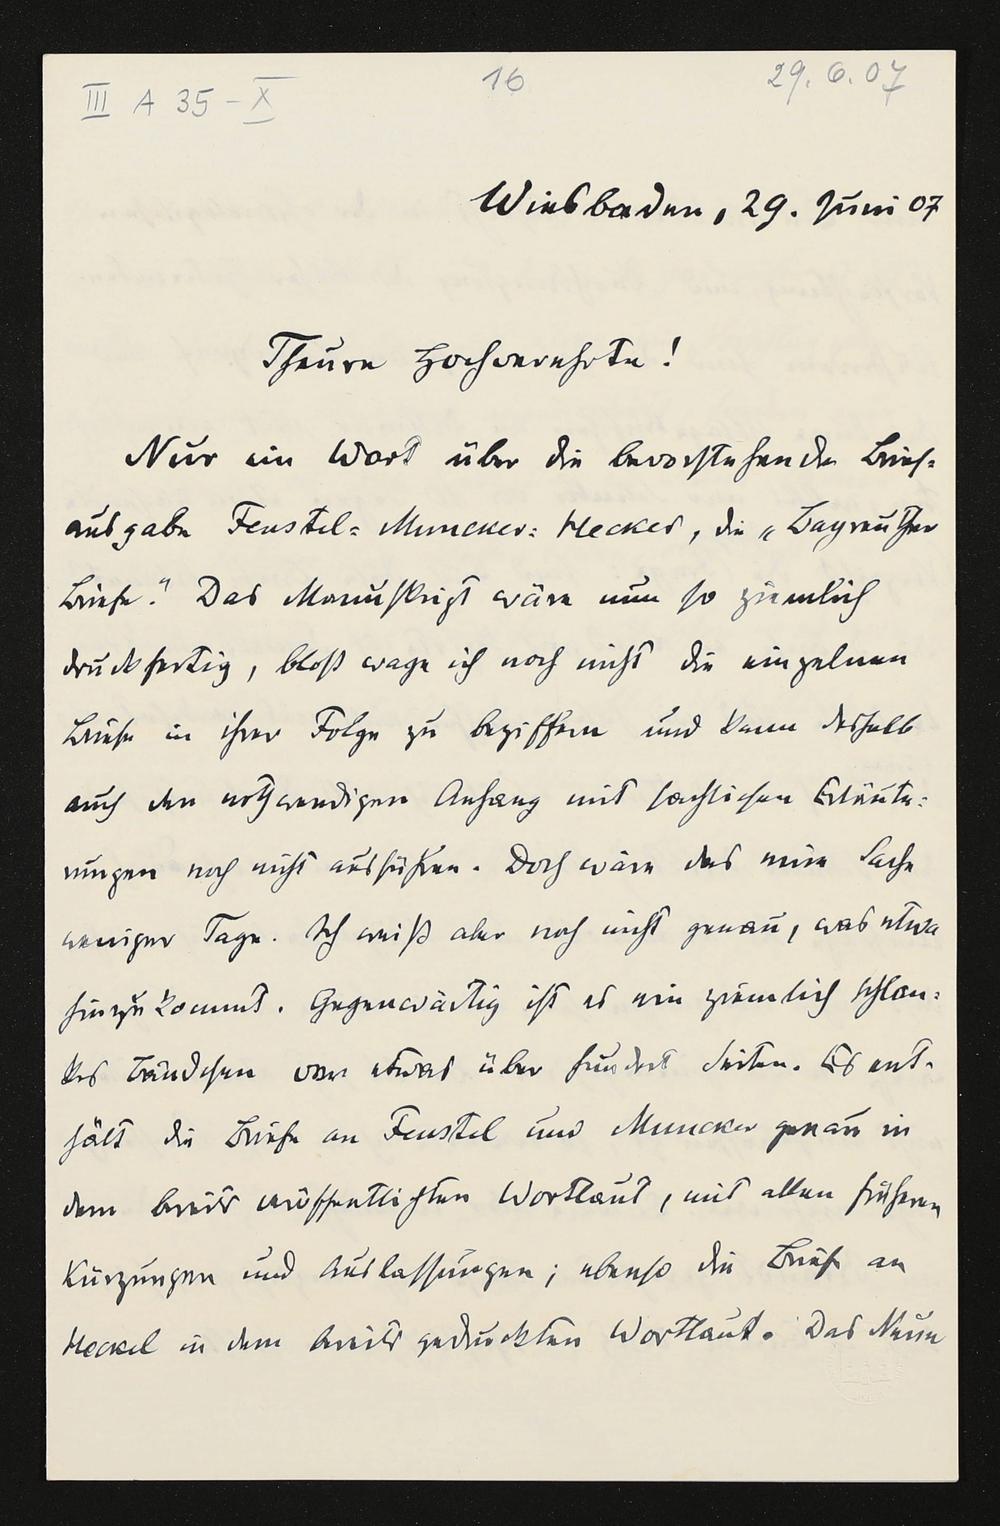 III A 35 – X
16
29. 6. 07
Wiesbaden, 29. Juni 07
Theure Hochverehrte!
Nur ein Wort über die bevorstehende Brief-
ausgabe Feustel- Muncker- Heckel, die „Bayreuther
Briefe." Das Manuskript wäre nun so ziemlich
druckfertig, bloß wage ich noch nicht die einzelnen
Briefe in ihrer Folge zu beziffern und kann deshalb
auch den nothwendigen Anhang mit sachlichen Erläute-
rungen noch nicht ausführen. Doch wäre das eine Sache
weniger Tage. Ich weiß aber noch nicht genau, was etwa
hinzu kommt. Gegenwärtig ist es ein ziemlich schlan-
kes Bändchen von etwas über hundert Seiten. Es ent-
hält die Briefe an Feustel und Muncker genau in
dem bereits veröffentlichten Wortlaut, mit allen früheren
Kürzungen und Auslassungen; ebenso die Briefe an
Heckel in dem bereits gedruckten Wortlaut. Das Neue